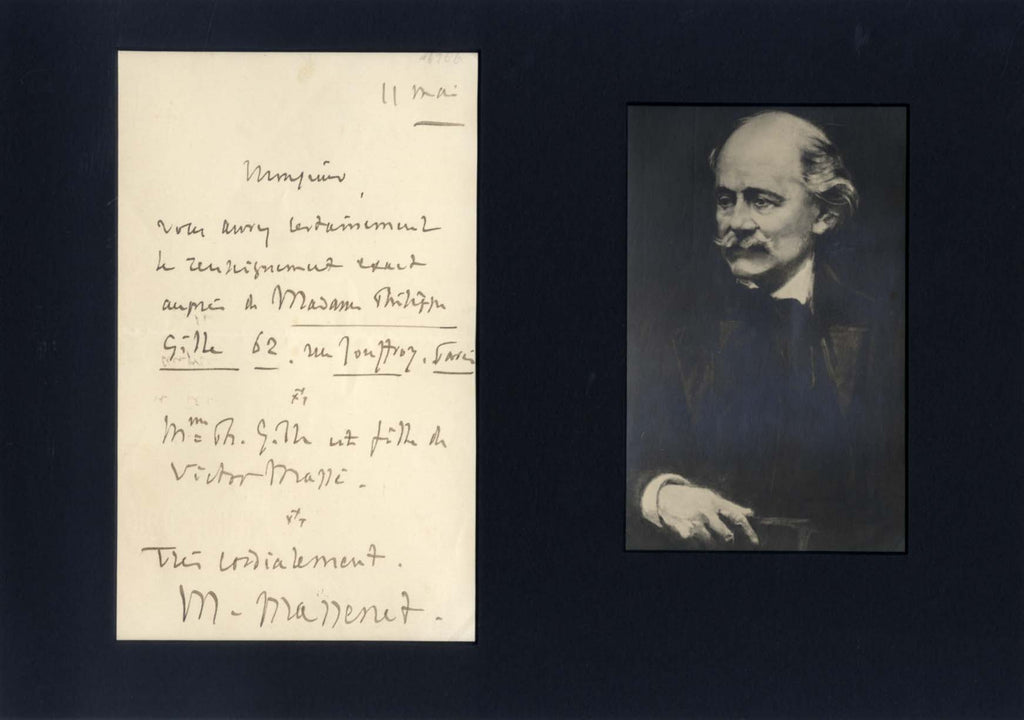 11 mai
Monsieur,
vous aurez certainement
le renseignement exact
auprès de Madame Philippe
Gille 62. rue Jouffroy. Paris
Mme Ph. Gille est fille de
Victor Massé.
Très cordialement.
M. Massenet.